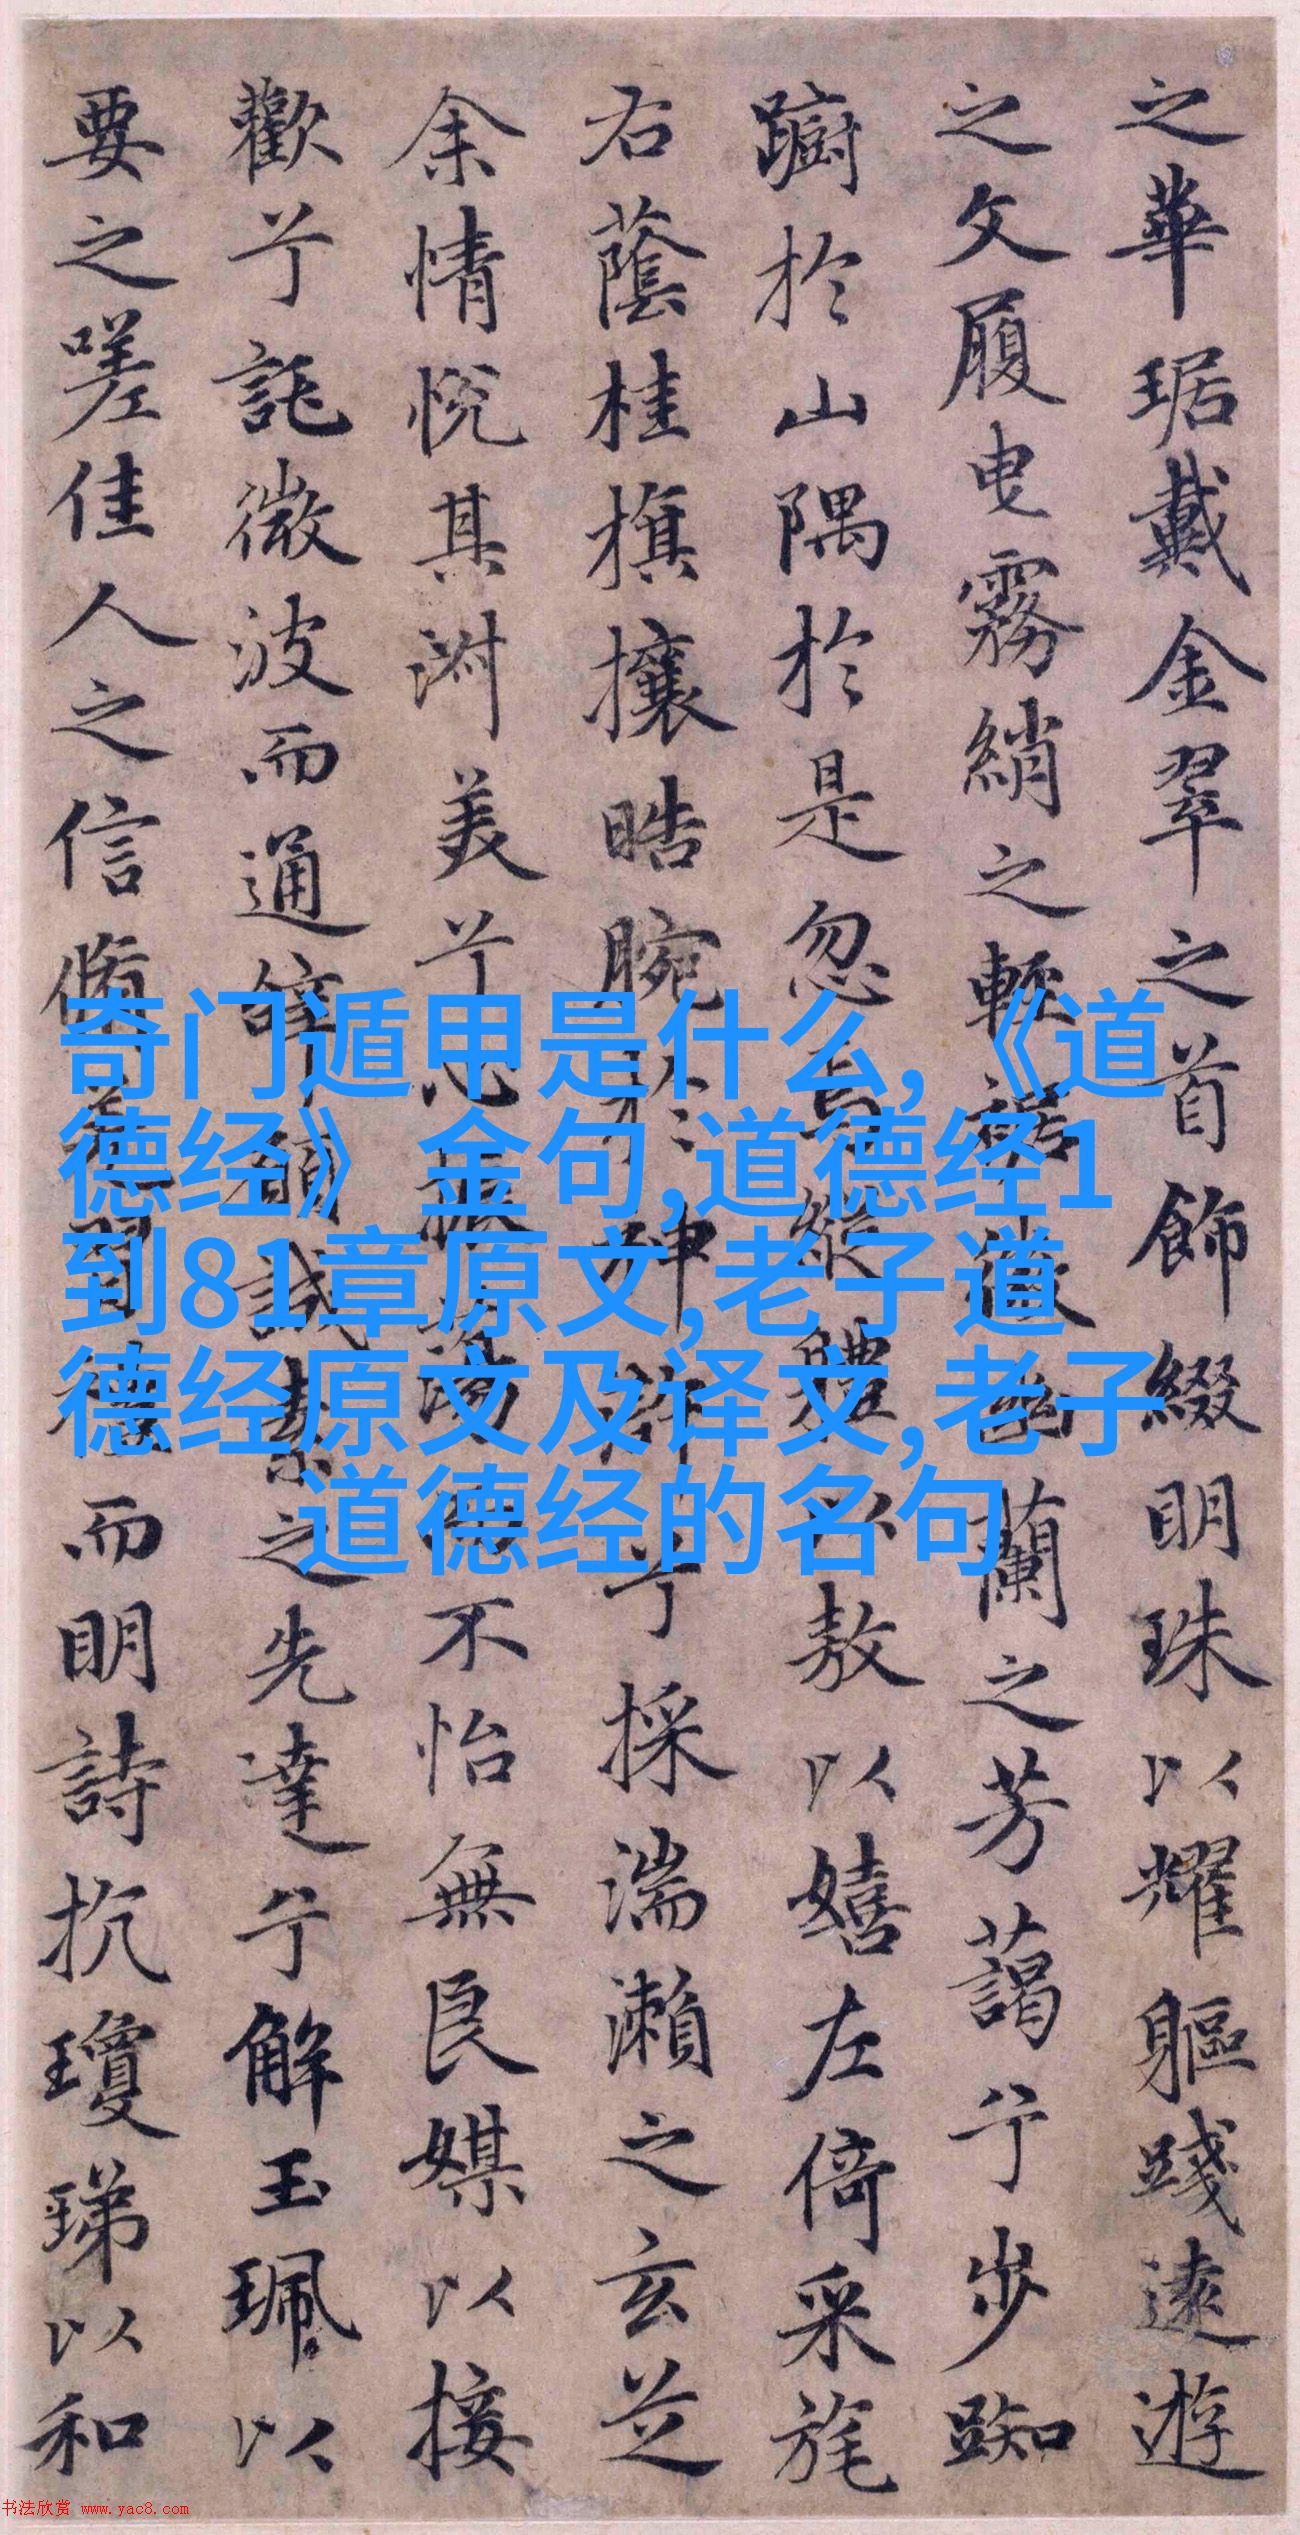 之華琚戴金翠之首飾綴明珠以耀軀踐遠遊
之文履曳霧綃之輕裾微幽蘭之芳藹兮步踟
躕於山隅於是忽焉縱體以敖以嬉左倚采旄
右蔭桂旗攘晧腕於神滸兮採湍瀨之玄芝
余情悅其淑美兮心振蕩而不怡無良媒以接
歡兮託微波而通辭願誠素之先達兮解玉珮以
要之嗟佳人之信脩羌習禮而明詩抗瓊珶以和
奇门遁甲是什么,《道
德经》金句,道德经1
到81章原文,老子道
德经原文及译文,老子
道德经的名句
书法欣赏 www.yac8.com